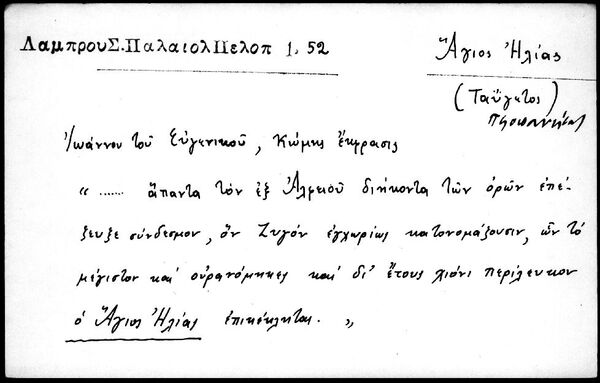 ΛαμπρουΣ.ΠαλαιολΠελοπ 1, 52
Ἅγιος Ἠλίας
(Ταΰγετος)
Ἰωάννου τοῦ Εὐγενικοῦ, Κώμης ἔκφρασις
“ ...... ἅπαντα τὸν ἐξ Ἀλφειοῦ διήκοντα τῶν ὀρῶν ἐπέ-
ζευξε σύνδεσμον, ὃν Ζυγόν ἐγχωρίως κατονομάζουσιν, ὧν τὸ
μέγιστον καὶ οὐρανόμηκες καὶ δι' ἔτους χιόνι περίλευκον
ὁ Ἅγιος Ἠλίας ἐπικέκληται. „